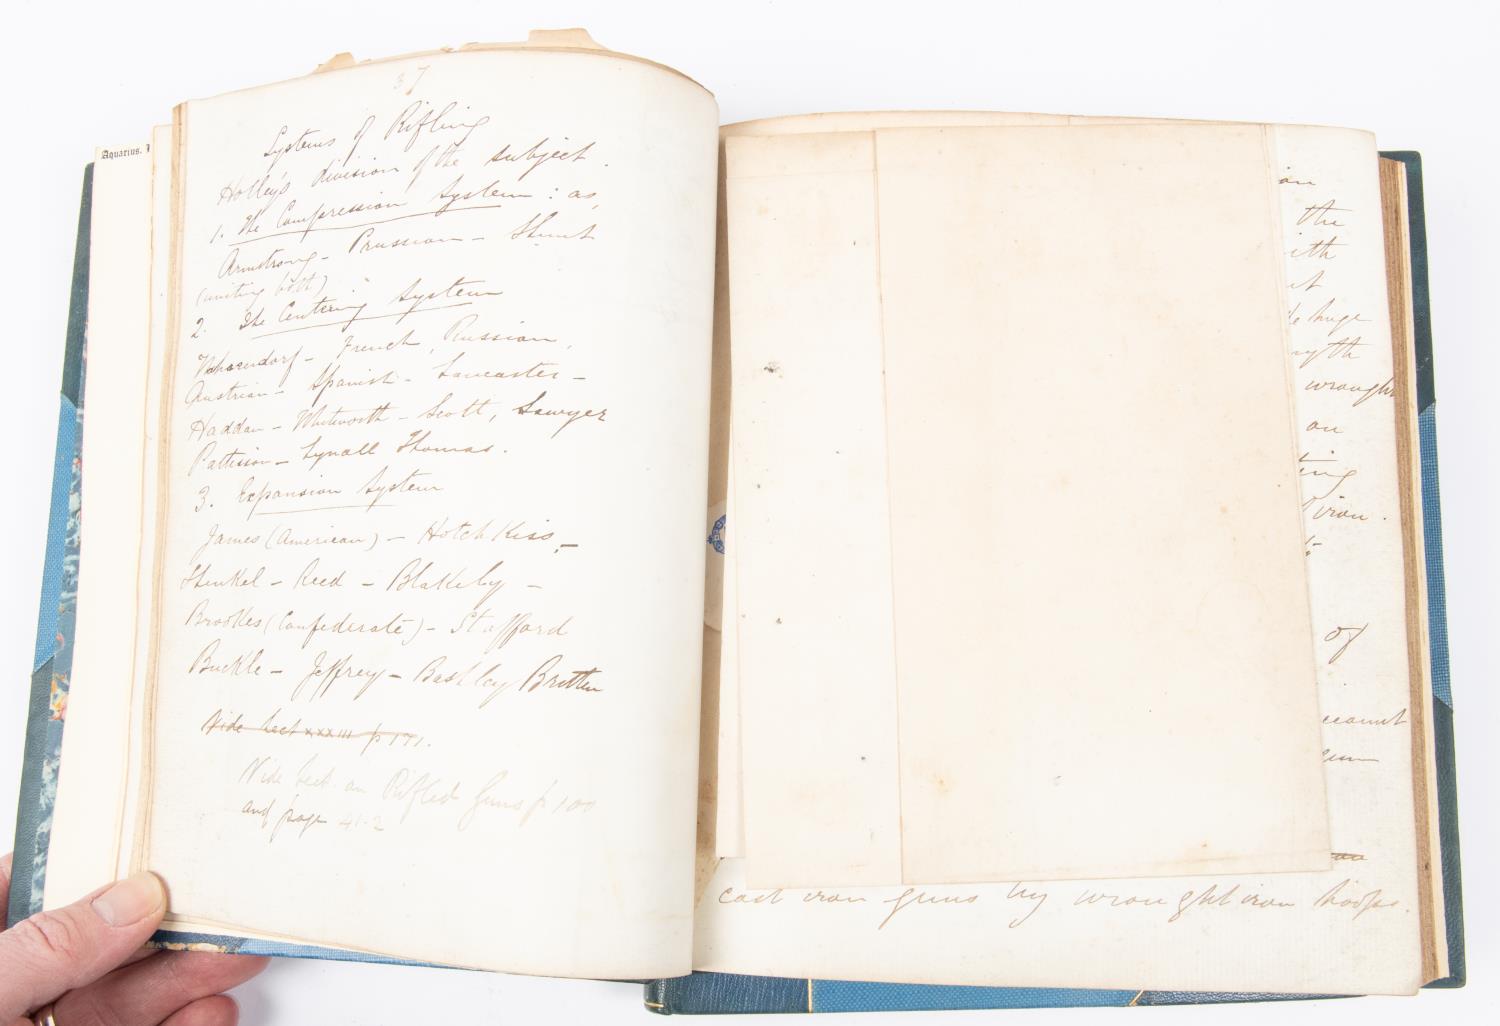 Aquarius.
37
Systems of Rifling
Holley's division of the subject.
1. The Compression System : as,
Armstrong - Prussian - Shunt
(uniting both)
2. The Centering System
Wahrendorf - French, Russian,
Austrian - Spanish - Lancaster -
Haddan - Whitworth - Scott, Sawyer
Pattison - Lynall Thomas.
3. Expansion System
James (American) - Hotchkiss, -
Shenkel - Reed - Blakely -
Brookes (Confederate) - Stafford
Buckle - Jeffrey - Bashley Britten
Vide Lect XXXIII p 171.
Vide Lect on Rifled Guns p 100
and page 41-2
on
the
ith
huge
wrough
on
ting
iron.
of
ccount
cast iron guns by wrought iron hoops.